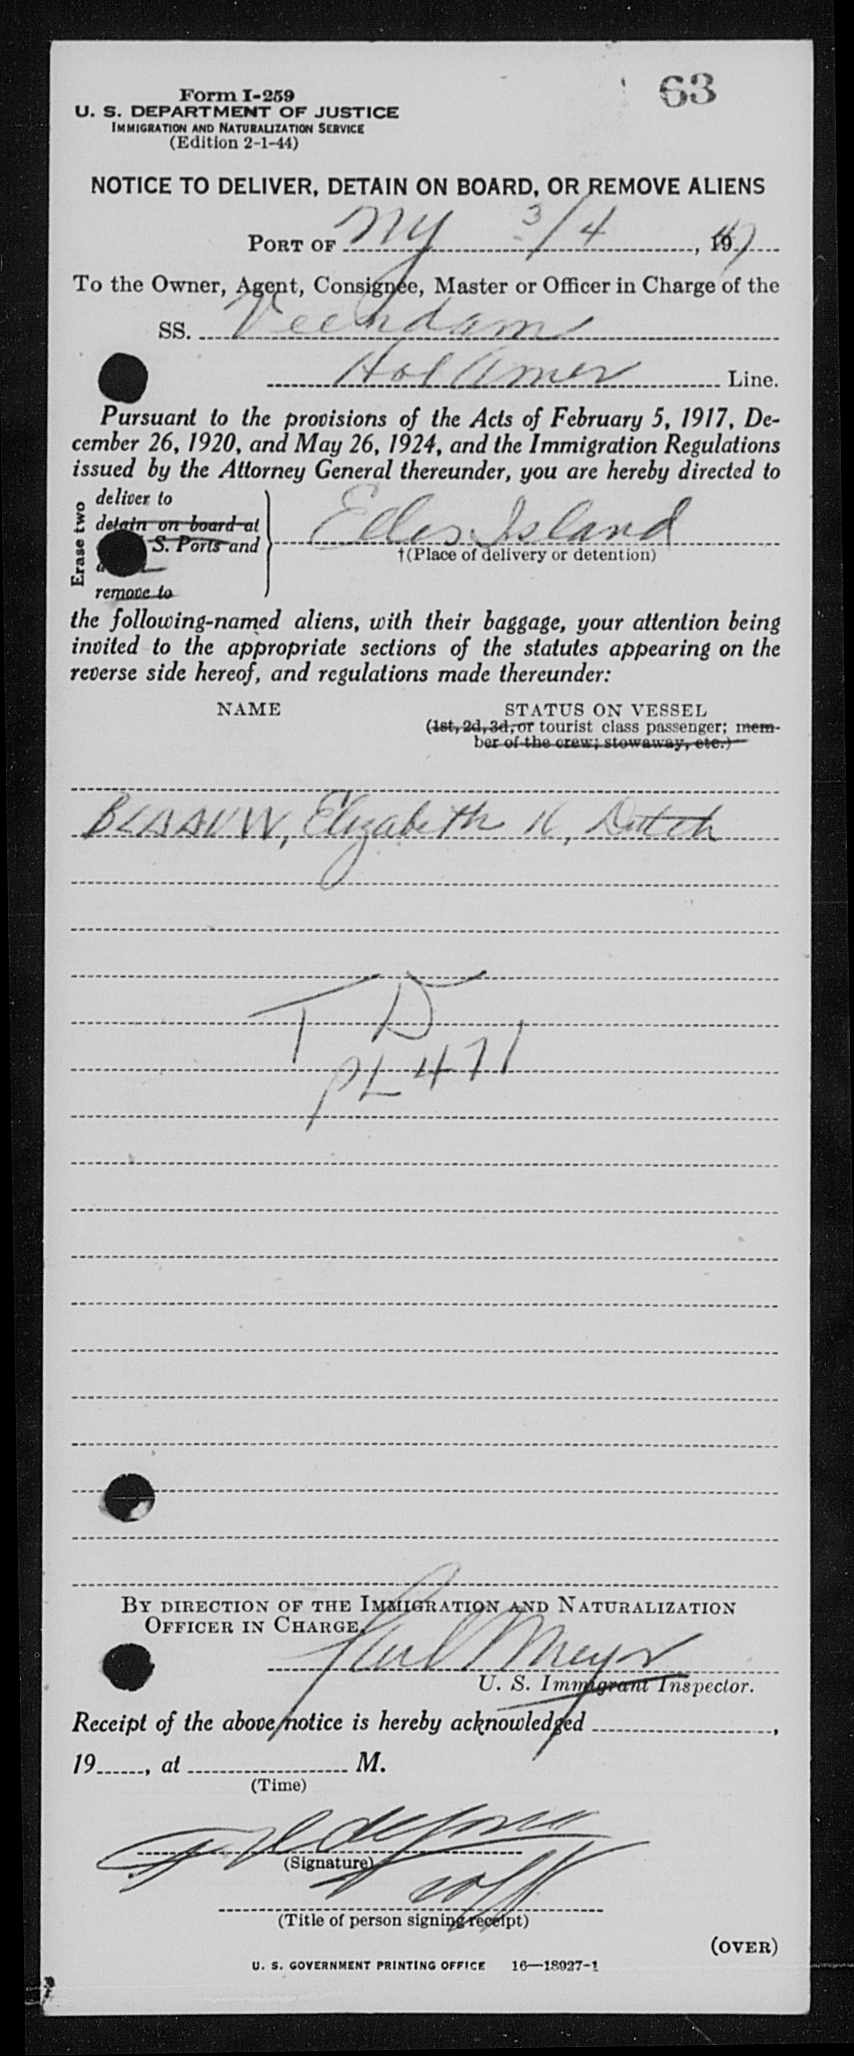 63
Form I-259
U. S. DEPARTMENT OF JUSTICE
IMMIGRATION AND NATURALIZATION SERVICE
(Edition 2-1-44)
NOTICE TO DELIVER, DETAIN ON BOARD, OR REMOVE ALIENS
PORT OF NY 3/4, 1947
To the Owner, Agent, Consignee, Master or Officer in Charge of the
SS. Veendam
Hol Amer Line.
Pursuant to the provisions of the Acts of February 5, 1917, De-
cember 26, 1920, and May 26, 1924, and the Immigration Regulations
issued by the Attorney General thereunder, you are hereby directed to
Erase two
deliver to
detain on board at
S. Ports and
remove to
Ellis Island
†(Place of delivery or detention)
the following-named aliens, with their baggage, your attention being
invited to the appropriate sections of the statutes appearing on the
reverse side hereof, and regulations made thereunder:
NAME
STATUS ON VESSEL
(1st, 2d, 3d, or tourist class passenger; mem-
ber of the crew; stowaway, etc.)
BLAAUW, Elizabeth K, Dutch
T D
PL 471
BY DIRECTION OF THE IMMIGRATION AND NATURALIZATION
OFFICER IN CHARGE,
U. S. Immigrant Inspector.
Receipt of the above notice is hereby acknowledged ,
19 , at M.
(Time)
(Signature)
(Title of person signing receipt)
(OVER)
U. S. GOVERNMENT PRINTING OFFICE 16—18027-1